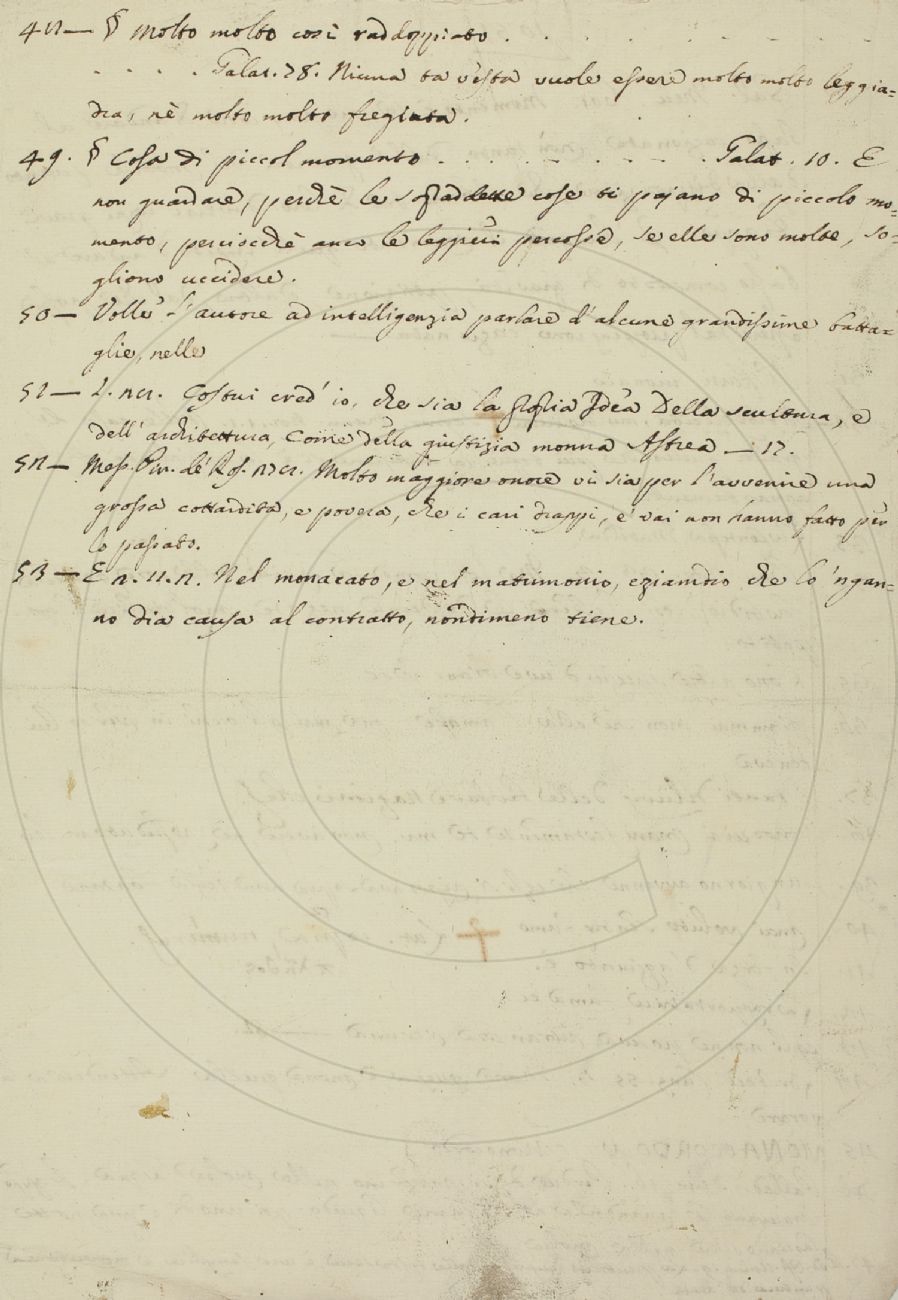 42— § Molto molto così raddoppiato . . . . . . . . .
. . . . Galat. 78. Niuna tua vesta vuole essere molto molto leggia=
dra, nè molto molto fregiata.
49. § Cosa di piccol momento . . . . . . . . Galat. 10. E
non guardare, perchè le sopraddette cose ti pajano di piccolo mo=
mento, perciocchè anco le leggieri percosse, se elle sono molte, so=
gliono uccidere.
50— Volle l'autore ad intelligenzia parlare d'alcune grandissime batta=
glie, nelle
51— Costui cred' io, che sia la Idea della scultura, e
dell' architettura, Come della giustizia monna Astrea — 17.
52— Mess. de' Ros. Molto maggiore onore vi sia per l'avvenire una
grossa cottardita, e povera, che i cari drappi, e' vai non hanno fatto per
lo passato.
53— E 2. 11. 2. Nel monacato, e nel matrimonio, eziandio che lo 'ngan=
no dia causa al contratto, nondimeno tiene.